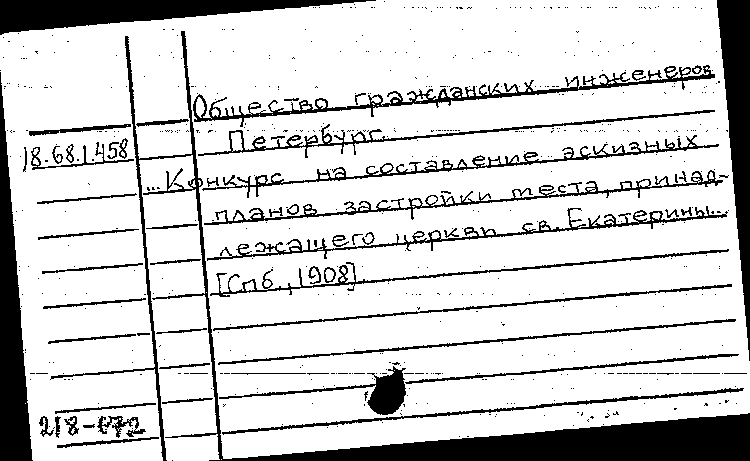 Общество гражданских инженеров
Петербург.
18.68.1.458
...Конкурс на составление эскизных
планов застройки места, принад-
лежащего церкви св. Екатерины...
[Спб., 1908].
218-672